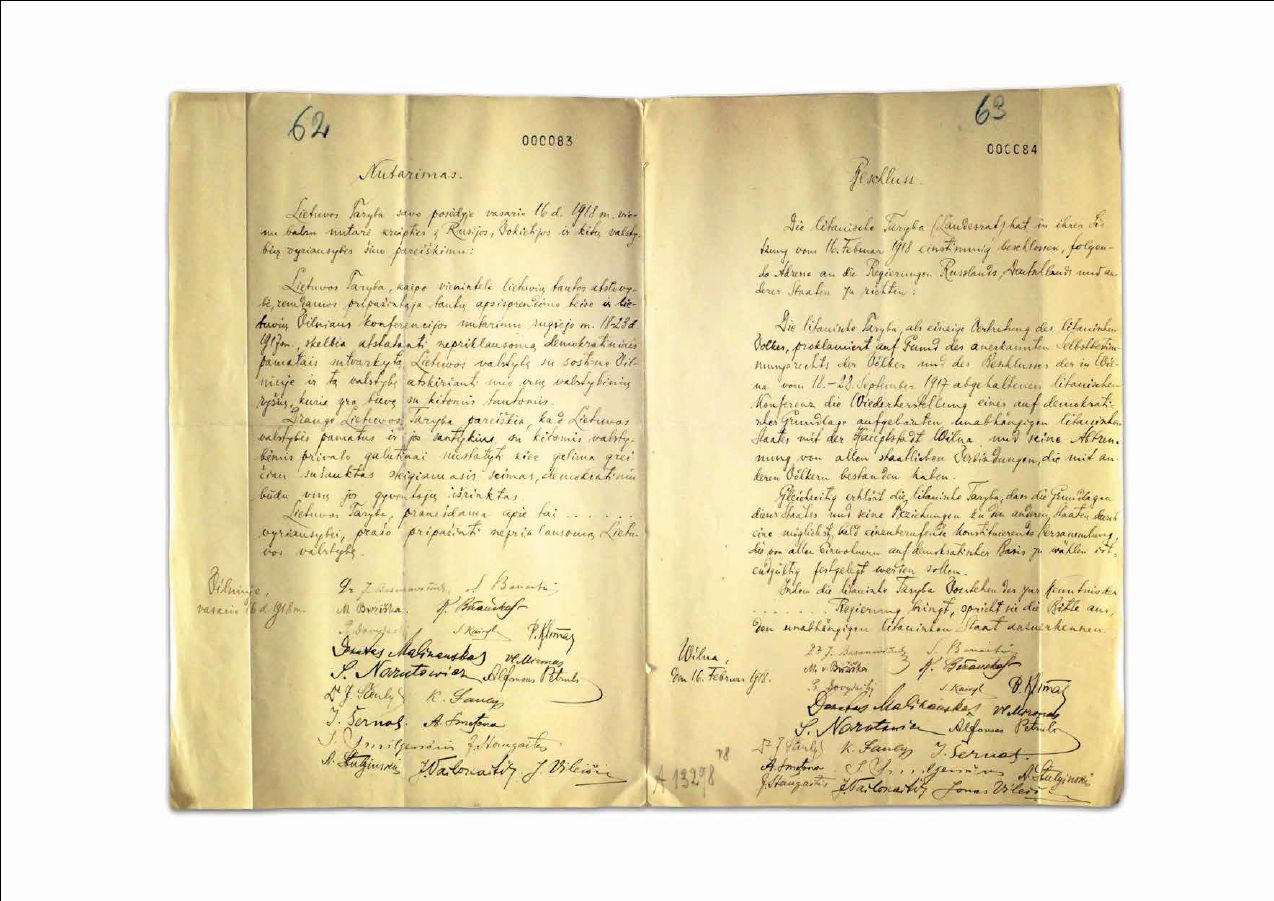 62
000083
Nutarimas.
Lietuvos Taryba savo posėdyje vasario 16 d. 1918 m. vie-
nu balsu nutarė kreiptis į Rusijos, Vokietijos ir kitų valsty-
bių vyriausybes šiuo pareiškimu:
Lietuvos Taryba, kaipo vienintelė lietuvių tautos atstovy-
bė, remdamos pripažintąja tautų apsisprendimo teise ir lie-
tuvių Vilniaus konferencijos nutarimu rugsėjo m. 18-23 d.
1917 m., skelbia atstatanti nepriklausomą demokratiniais
pamatais sutvarkytą Lietuvos valstybę su sostine Vil-
niuje ir tą valstybę atskirianti nuo visų valstybinių
ryšių, kurie yra buvę su kitomis tautomis.
Drauge Lietuvos Taryba pareiškia, kad Lietuvos
valstybės pamatus ir jos santykius su kitomis valsty-
bėmis privalo galutinai nustatyti kiek galima grei
čiau sušauktas steigiamasis seimas, demokratiniu
būdu visų jos gyventojų išrinktas.
Lietuvos Taryba, pranešdama apie tai . . . . . .
vyriausybei, prašo pripažinti nepriklausomą Lietu-
vos valstybę.
Vilniuje,
vasario 16 d. 1918 m.
Dr J. Basanavičius S. Banaitis
M. Biržiška. K. Bizauskas
P. Dovydaitis S. Kairys P. Klimas
Donatas Malinauskas Vl. Mironas
S. Narutowicz Alfonsas Petrulis
Dr J Šaulys K. Šaulys
J. Šernas. A. Smetona
J. Smilgevičius J. Staugaitis
A. Stulginskis J. Vailokaitis J. Vileišis
63
000084
Beschluss.
Die litauische Taryba (Landesrat) hat in ihrer Sit-
zung vom 16. Februar 1918 einstimmig beschlossen, folgen-
de Adresse an die Regierungen Russlands, Deutschlands und an-
derer Staaten zu richten:
Die litauische Taryba, als einzige Vertretung des litauischen
Volkes, proklamiert auf Grund des anerkannten Selbstbestim
mungsrechts der Völker und des Beschlusses der in Wil-
na vom 18.-23. September 1917 abgehaltenen litauischen
Konferenz die Wiederherstellung eines auf demokrati-
scher Grundlage aufgebauten unabhängigen litauischen
Staates mit der Hauptstadt Wilna und seine Abtren-
nung von allen staatlichen Verbindungen, die mit an-
deren Völkern bestanden haben.
Gleichzeitig erklärt die litauische Taryba, dass die Grundlagen
dieses Staates und seine Beziehungen zu den anderen Staaten durch
eine möglichst bald einzuberufende konstituierende Versammlung,
die von allen Einwohnern auf demokratischer Basis zu wählen ist,
endgültig festgelegt werden sollen.
Indem die litauische Taryba Vorstehendes zur Kenntnis der
. . . . . . . Regierung bringt, spricht sie die Bitte aus,
den unabhängigen litauischen Staat anzuerkennen.
Wilna,
den 16. Februar 1918.
Dr J. Basanavičius S. Banaitis
M. v. Biržiška K. Bizauskas
P. Dovydaitis S. Kairys P. Klimas
Donatas Malinauskas Vl. Mironas
S. Narutowicz Alfonsas Petrulis
Dr J Šaulys K. Šaulys J. Šernas
A. Smetona J. Smilgevičius A. Stulginskis
J. Staugaitis J. Vailokaitis Jonas Vileišis
A 13298